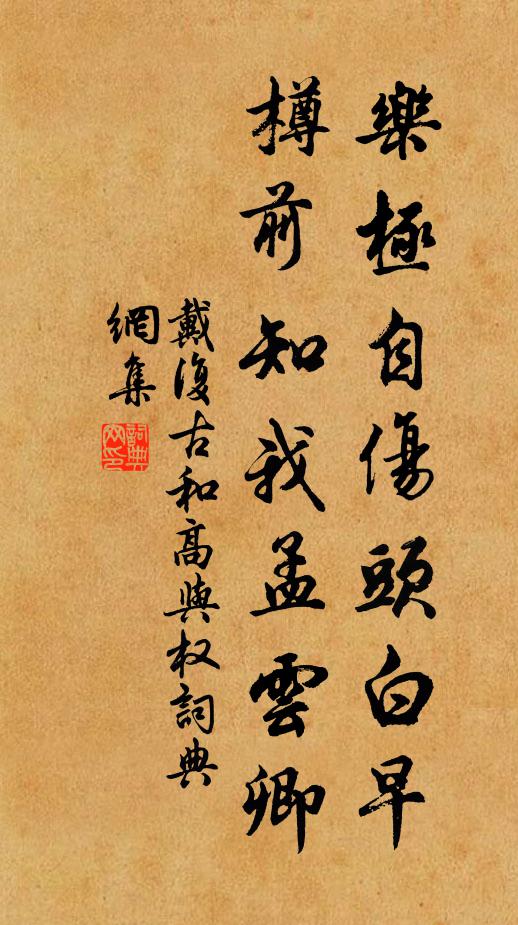 樂極自傷頭白早
樽前知我孟雲卿
戴復古和高與权詞典
網集
詞典
网印